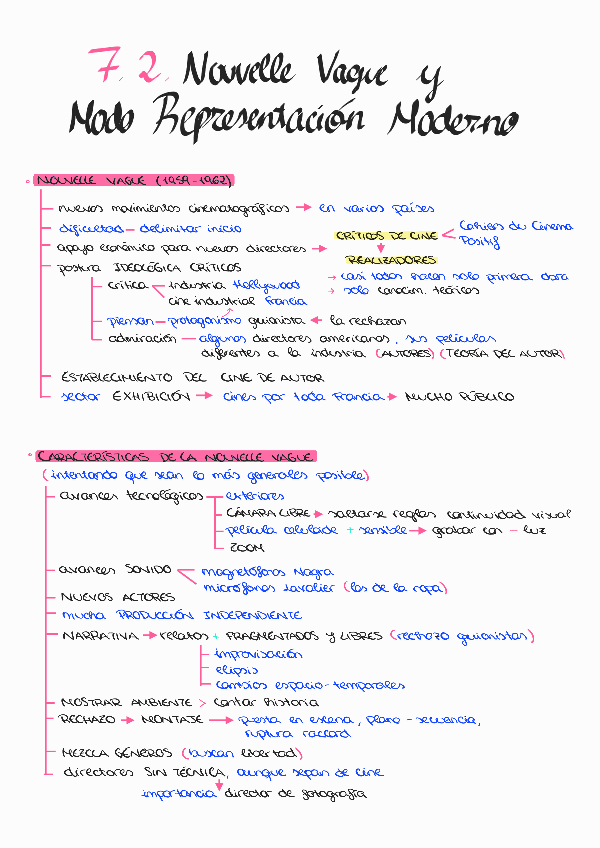 7.2. Nouvelle Vague y
Modo Representación Moderno
NOUVELLE VAGUE (1959-1962)
nuevos movimientos cinematográficos → en varios países
dificultad - delimitar inicio
apoyo económico para nuevos directores → CRÍTICOS DE CINE < Cahiers du Cinema
Positif
REALIZADORES
postura IDEOLÓGICA CRÍTICOS
→ casi todos hacen solo primera obra
→ solo conocim. teóricos
crítica < industria Hollywood
cine industrial Francia
piensan - protagonismo guionista ← la rechazan
admiración - algunos directores americanos, sus películas
diferentes a la industria (AUTORES) (TEORÍA DEL AUTOR)
ESTABLECIMIENTO DEL CINE DE AUTOR
sector EXHIBICIÓN → cines por toda Francia → MUCHO PÚBLICO
CARACTERÍSTICAS DE LA NOUVELLE VAGUE
(intentando que sean lo más generales posible)
avances tecnológicos - exteriores
CÁMARA LIBRE → saltarse reglas continuidad visual
película celuloide + sensible → grabar con - luz
ZOOM
avances SONIDO < magnetófonos Nagra
micrófonos Lavalier (los de la ropa)
NUEVOS ACTORES
mucha PRODUCCIÓN INDEPENDIENTE
NARRATIVA → relatos + FRAGMENTADOS Y LIBRES (rechazo guionistas)
improvisación
elipsis
cambios espacio-temporales
MOSTRAR AMBIENTE > contar historia
RECHAZO → MONTAJE → puesta en escena, plano-secuencia,
ruptura raccord
MEZCLA GÉNEROS (buscan libertad)
directores SIN TÉCNICA, aunque sepan de cine
importancia director de fotografía